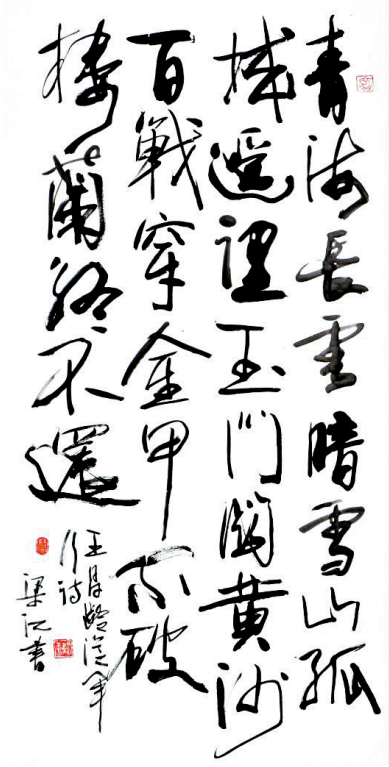 青海長雲暗雪山孤
城遥望玉門關黄沙
百戰穿金甲不破
樓蘭終不還
王昌齡從軍
行詩
梁江書